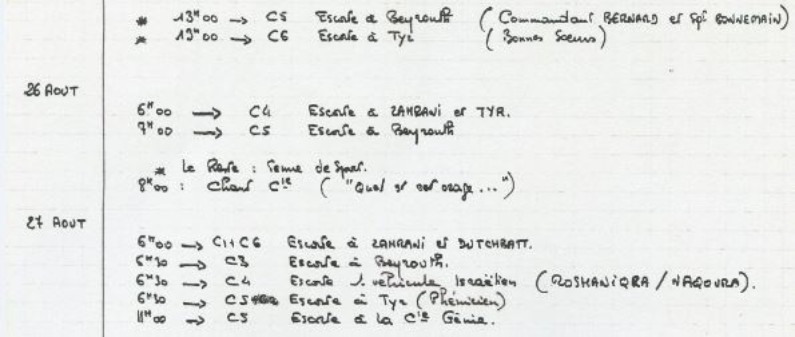 * 13H00 → C5 Escorte à Beyrouth (Commandant BERNARD et Sgt BONNEMAIN)
* 13H00 → C6 Escorte à Tyr (Bonnes Soeurs)
26 AOUT
6H00 → C4 Escorte à ZAHRANI et TYR.
7H00 → C5 Escorte à Beyrouth
* Le Reste : Tenue de Sport.
8H00 : Chant Cie ("Quel est cet orage...")
27 AOUT
6H00 → C1+C6 Escorte à ZAHRANI et DUTCHBATT.
6H30 → C3 Escorte à Beyrouth.
6H30 → C4 Escorte 1 véhicule Israëlien (ROSHANIQRA / NAQOURA).
6H30 → C5 Escorte à Tyr (Phénicien)
11H00 → C5 Escorte à la Cie Génie.